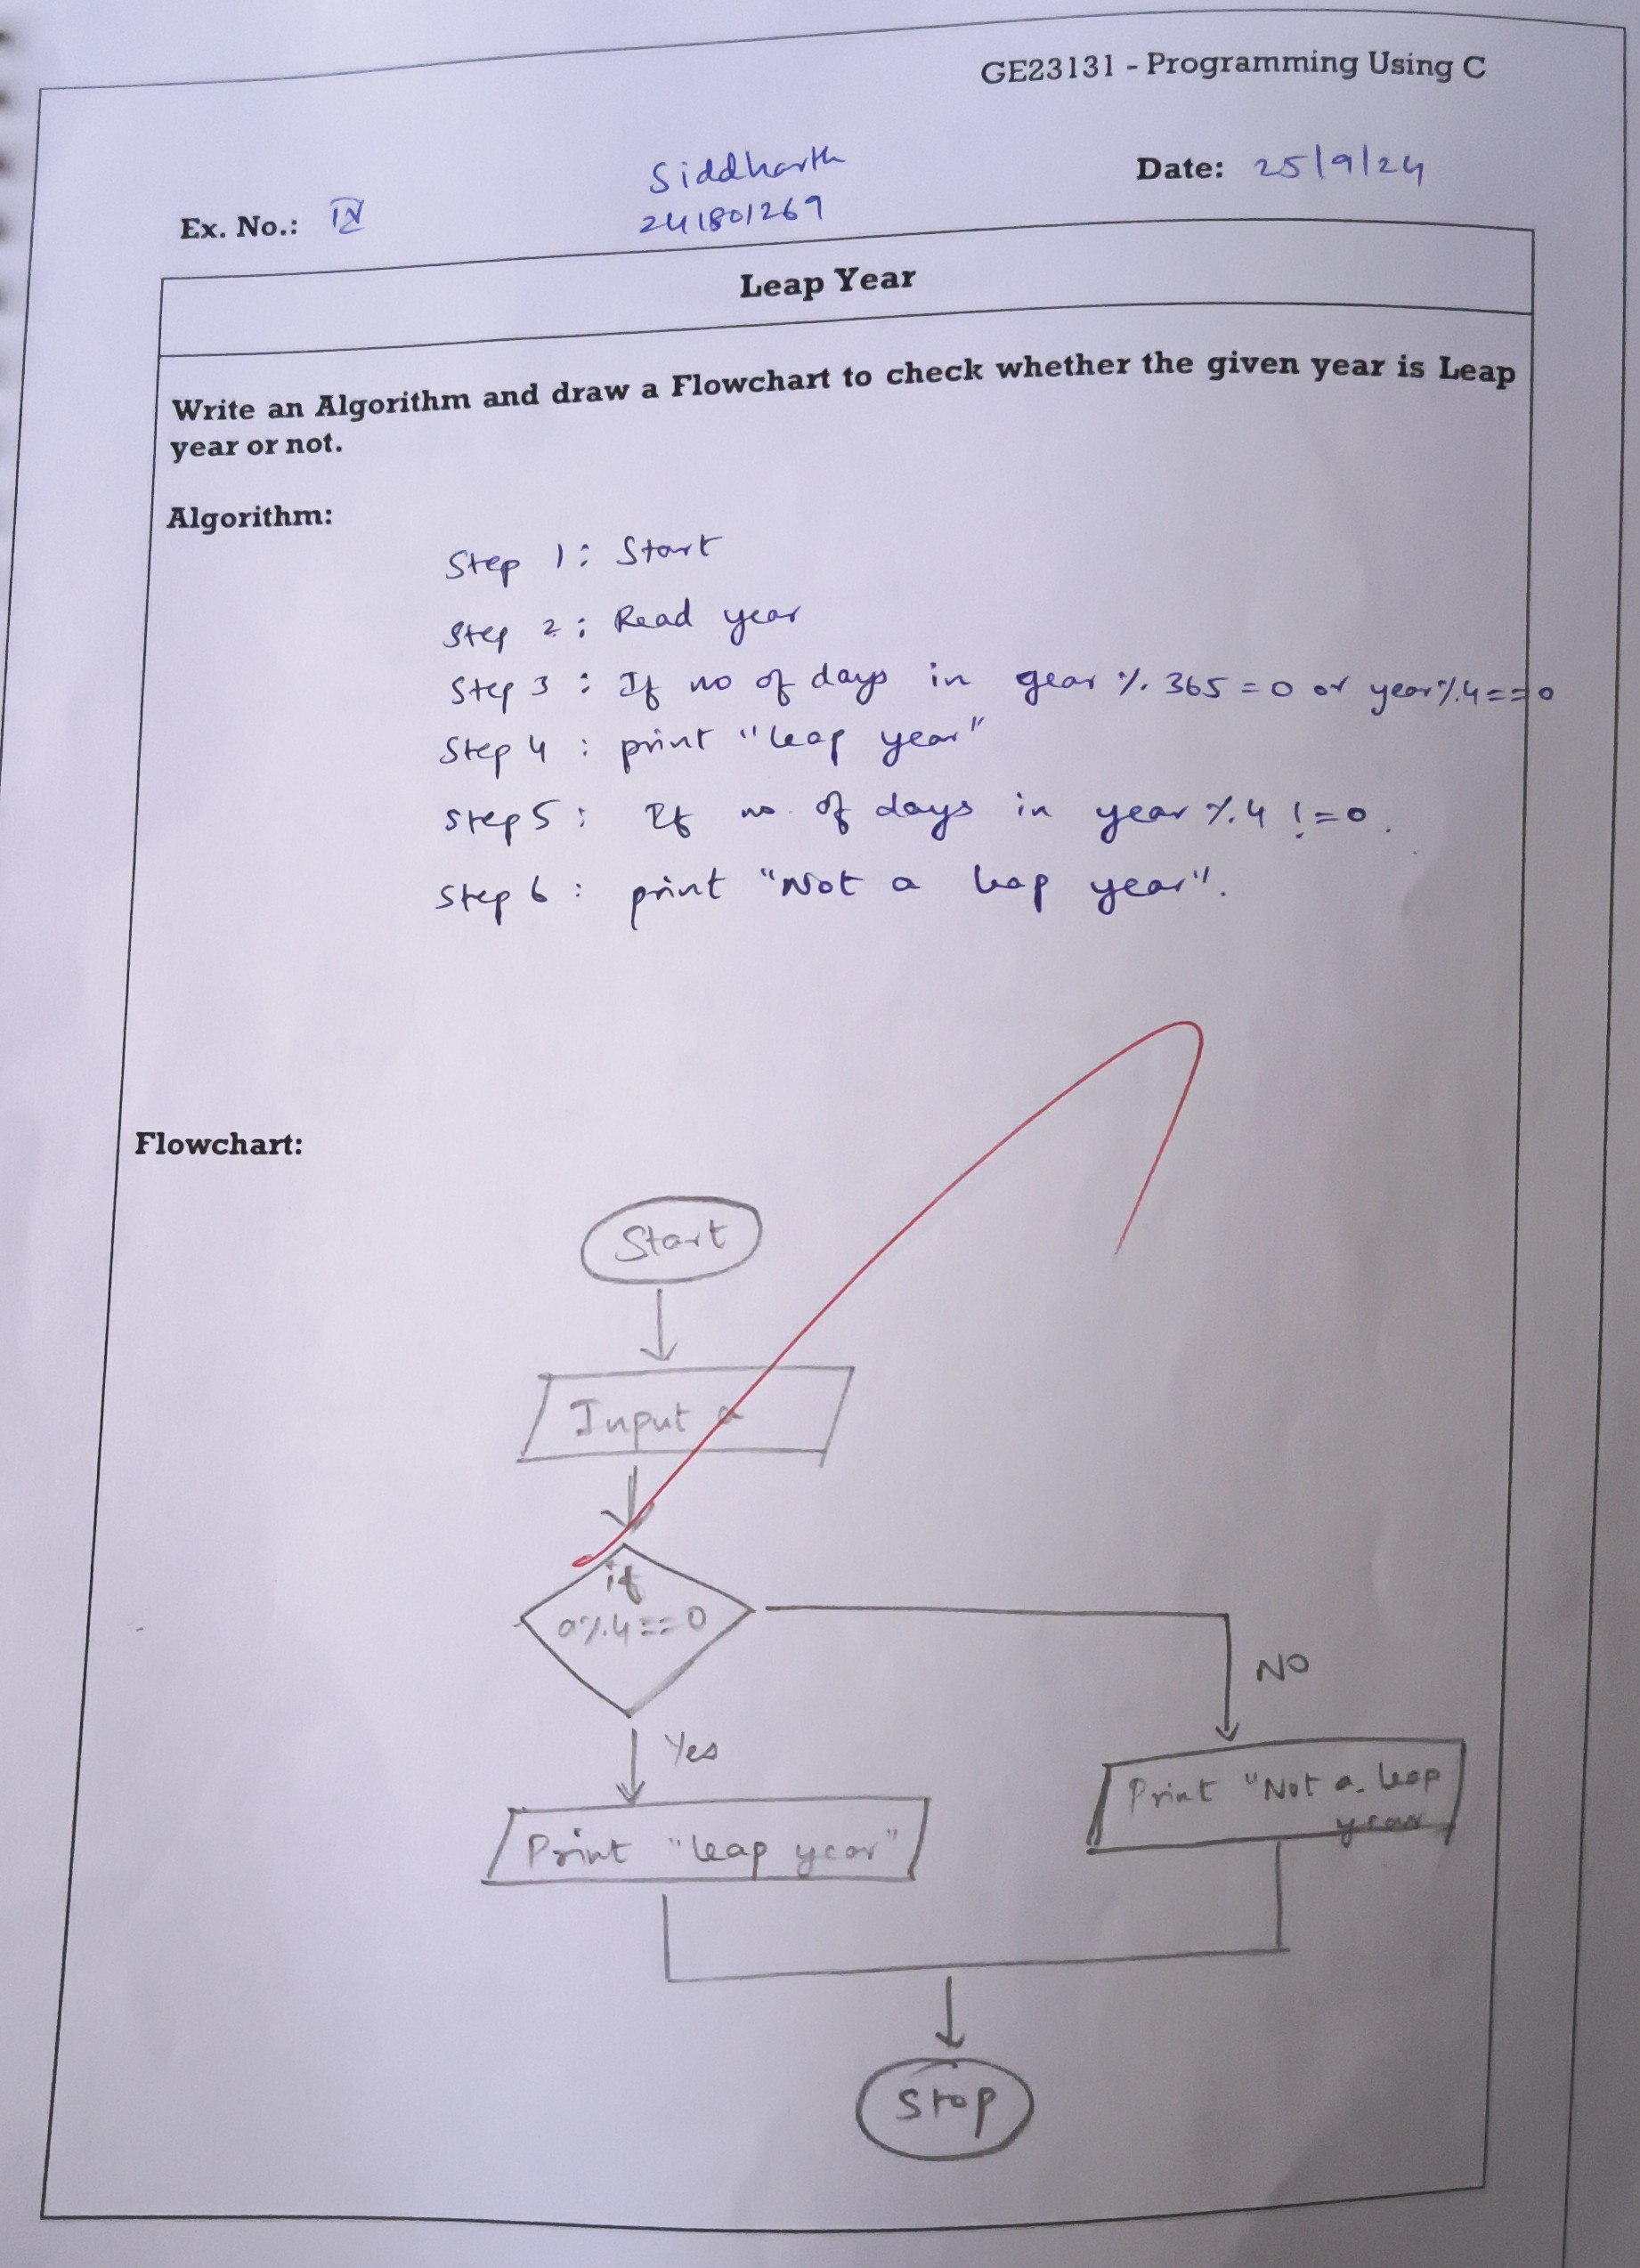 GE23131 - Programming Using C
Siddharth
Date: 25/9/24
Ex. No.: IV
241801269
Leap Year
Write an Algorithm and draw a Flowchart to check whether the given year is Leap
year or not.
Algorithm:
Step 1: Start
Step 2: Read year
Step 3 : If no of days in year % 365 = 0 or year%4==0
Step 4 : print "leap year"
Step 5: If no. of days in year %4 != 0.
Step 6 : print "Not a leap year".
Flowchart:
Start
Input a
if
a%4==0
NO
Yes
Print "Not a leap
year
Print "leap year"
Stop